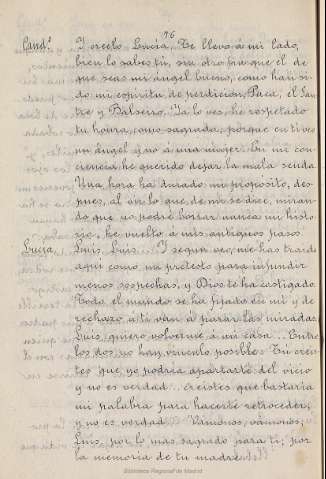 76
Cand.º Y créelo Lucía, te llevo á mi lado,
bien lo sabes tú, sin otro fin que el de
que seas mi ángel bueno, como han si-
do mi espíritu de perdición, Paca, el Sas-
tre y Balseiro. Ya lo ves, he respetado
tu honra, como sagrada, porque en ti veo
un ángel y no á una mujer. En mi con-
ciencia he querido dejar la mala senda.
Una hora ha durado mi propósito, des-
pues, al oir lo que de mi se dice, miran-
do que no podré borrar nunca mi histo-
ria, he vuelto á mis antiguos pasos
Lucía Luis, Luis. Y segun veo, me has traido
aqui como un pretesto para infundir
menos sospechas, y Dios te ha castigado.
Todo el mundo se ha fijado en mi y de
rechazo á ti van á parar las miradas.
Luis, quiero volverme á mi casa... Entre
los dos no hay vínculo posible. Tu creis-
tes que yo podria apartarte del vicio
y no es verdad... creistes que bastaria
mi palabra para hacerte retroceder,
y no es verdad... Vámonos, vámonos,
Luis, por lo mas sagrado para ti; por
la memoria de tu madre!
Biblioteca Regional de Madrid